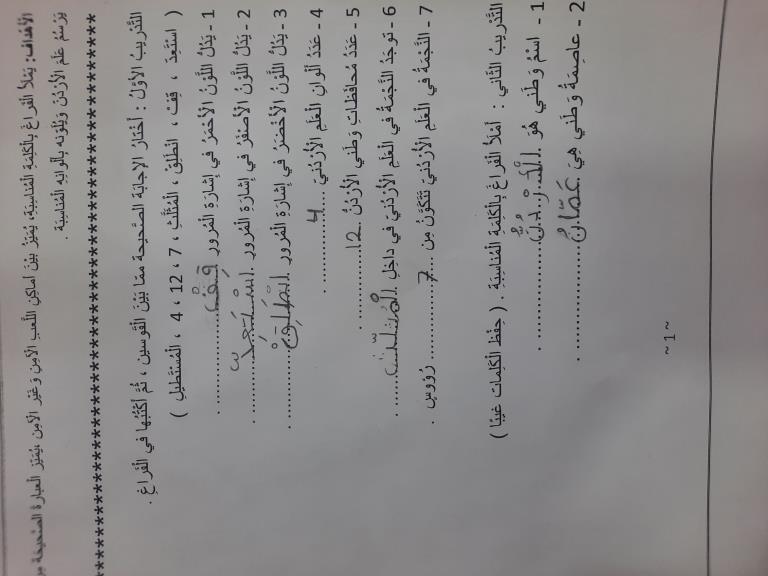 الأَهْدافُ: يَمْلَأُ الْفَراغَ بِالْكَلِمَةِ الْمُناسِبَةِ، يُمَيِّزُ بَيْنَ أَماكِنِ اللَّعِبِ الآمِنِ وَغَيْرِ الآمِنِ ،يُمَيِّزُ العِبارةَ الصَّحيحَةَ مِن
يَرْسُمُ عَلَمَ الأُرْدُنِّ وَيُلَوِّنُه بِأَلْوانِهِ الْمُناسِبَةِ .
التَّدْريبُ الأَوَّلُ : أَخْتارُ الإِجابَةَ الصَّحيحةَ مِمّا بَيْنَ الْقَوْسَيْنِ ، ثُمَّ أَكْتُبُها في الْفَراغِ .
( اسْتَعِدَّ ، قِفْ ، انْطَلِقْ ، الْمُثَلَّثِ ، 7 ، 12 ، 4 ، الْمُسْتَطيلِ )
1 - يَدُلُّ اللَّوْنُ الأَحْمَرُ في إِشارَةِ الْمُرورِ ...قِفْ........ .
2 - يَدُلُّ اللَّوْنُ الأَصْفَرُ في إِشارَةِ الْمُرورِ ..اسْتَعِدَّ....... .
3 - يَدُلُّ اللَّوْنُ الأَخْضَرُ في إِشارَةِ الْمُرورِ .انْطَلِقْ........ .
4 - عَدَدُ أَلْوانِ الْعَلَمِ الأُرْدُنِيِّ ......4........ .
5 - عَدَدُ مُحافَظاتِ وَطَني الأُرْدُنُّ ..12......... .
6 - توجَدُ النَّجْمَةُ في الْعَلَمِ الأُرْدُنيِّ في داخِلِ .الْمُثَلَّثِ..... .
7 - النَّجْمَةُ في الْعَلَمِ الأُرْدُنيِّ تَتَكَوَّنُ مِن ...7......... رُؤوسٍ .
التَّدْريبُ الثّاني : أَمْلَأُ الْفَراغَ بِالْكَلِمَةِ الْمُناسِبَةِ . ( حِفْظ الْكَلِمات غَيْبًا )
1 - اسْمُ وَطَني هُوَ .الْأُرْدُنُّ............ .
2 - عاصِمَةُ وَطَني هِيَ عَمّانُ............ .
~ 1 ~